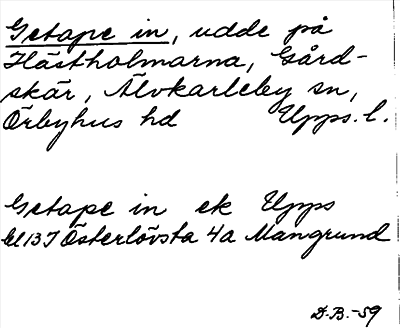 Getape in, udde på
Hästholmarna, Gård-
skär, Älvkarleby sn,
Örbyhus hd Upps. l.
Getape in ek Upps
bl 13 I Österlövsta 4a Mangrund
D.B.-59